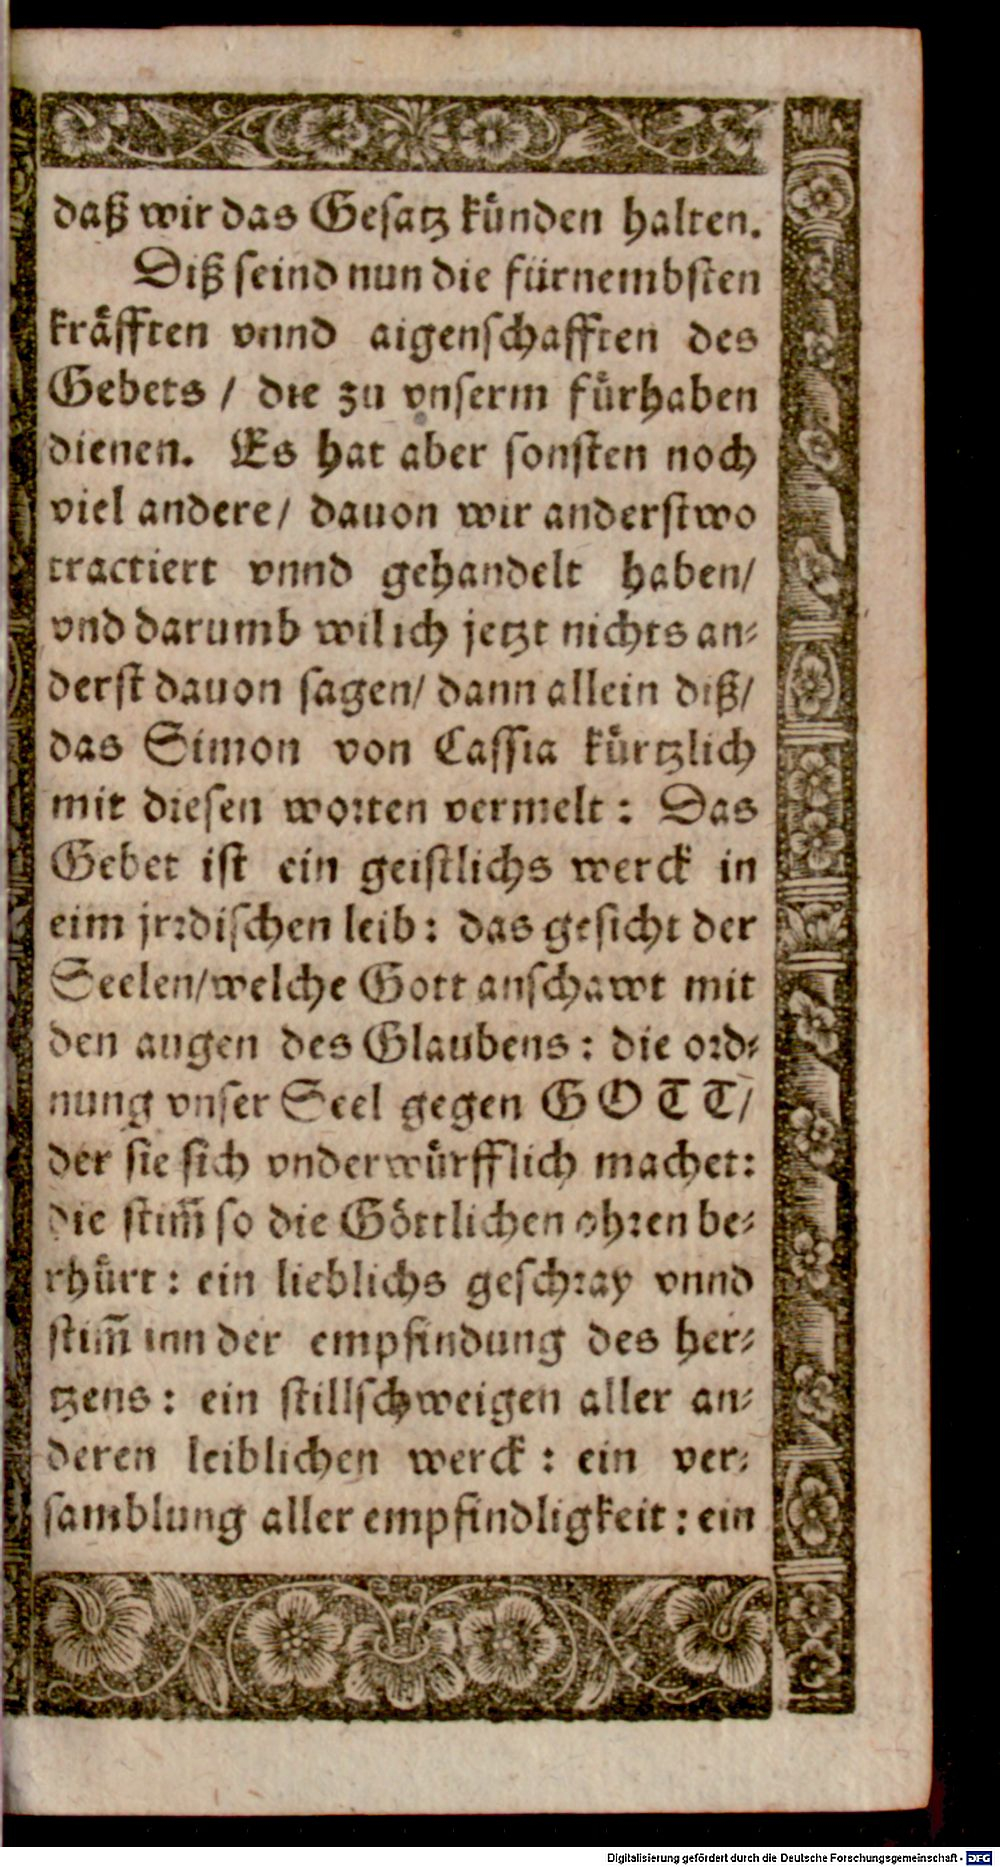 daß wir das Gesatz kuͤnden halten.
Diß seind nun die fürnembsten
kraͤfften vnnd aigenschafften des
Gebets / die zu vnserm fuͤrhaben
dienen. Es hat aber sonsten noch
viel andere / dauon wir anderstwo
tractiert vnnd gehandelt haben /
vnd darumb wil ich jetzt nichts an⸗
derst dauon sagen / dann allein diß /
das Simon von Cassia kuͤrtzlich
mit diesen worten vermelt : Das
Gebet ist ein geistlichs werck in
eim jrrdischen leib : das gesicht der
Seelen / welche Gott anschawt mit
den augen des Glaubens : die ord⸗
nung vnser Seel gegen GOTT /
der sie sich vnderwuͤrfflich machet :
die stim̃ so die Goͤttlichen ohren be⸗
rhuͤrt : ein lieblichs geschray vnnd
stim̃ inn der empfindung des her⸗
tzens : ein stillschweigen aller an⸗
deren leiblichen werck : ein ver⸗
samblung aller empfindligkeit : ein
Digitalisierung gefördert durch die Deutsche Forschungsgemeinschaft - DFG